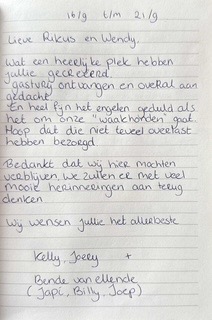 16/9 t/m 21/9
Lieve Rikus en Wendy,
Wat een heerlijke plek hebben
jullie gecreëerd.
gastvrij ontvangen en overal aan
gedacht.
En heel fijn het engelen geduld als
het om onze "waakhonden" gaat.
Hoop dat die niet teveel overlast
hebben bezorgd.
Bedankt dat wij hier mochten
verblijven, we zullen er met veel
mooie herinneringen aan terug
denken.
Wij wensen jullie het allerbeste
Kelly, Joery +
Bende van ellende
(Japi, Billy, Joep)